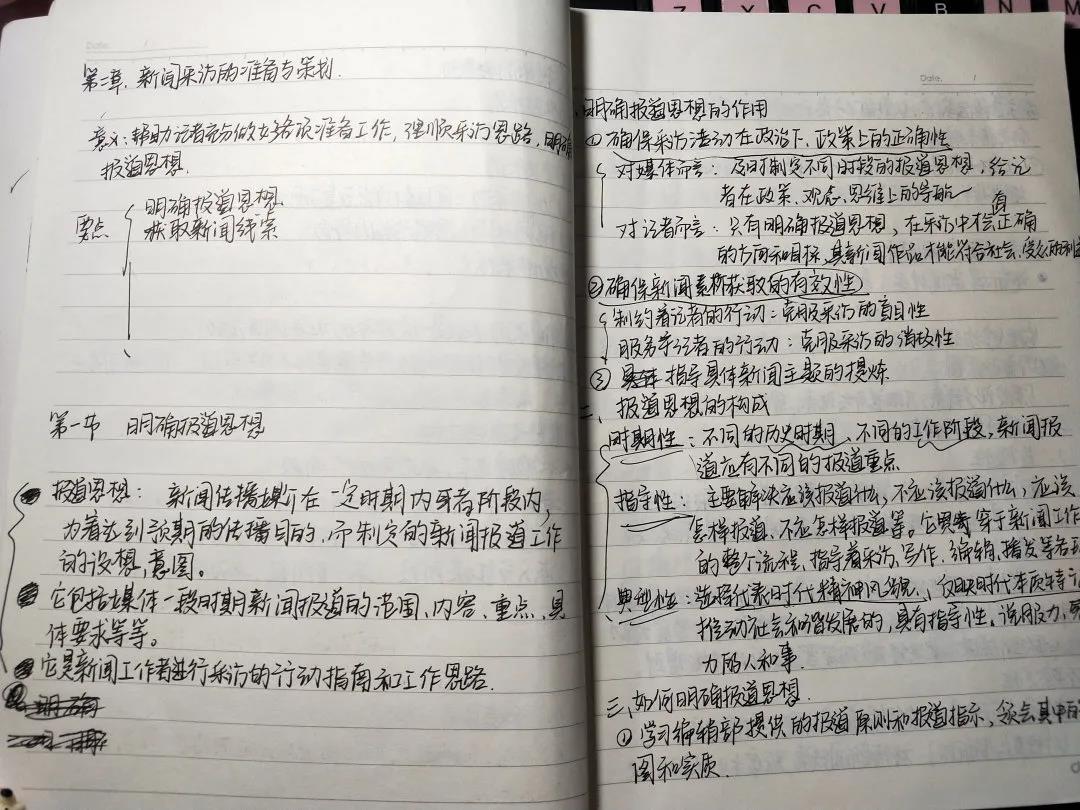 Date. /
第二章. 新闻采访的准备与策划.
意义: 帮助记者充分做好各项准备工作, 理顺采访思路, 明确
报道思想.
要点
明确报道思想
获取新闻线索
第一节 明确报道思想
报道思想: 新闻传播媒介在一定时期内或者阶段内,
为着达到预期的传播目的, 而制定的新闻报道工作
的设想, 意图。
它包括媒体一段时期新闻报道的范围、内容、重点、具
体要求等等。
它是新闻工作者进行采访的行动指南和工作思路.
Z X C V B N M
Date. /
明确报道思想的作用
① 确保采访活动在政治下、政策上的正确性
对媒体而言: 及时制定不同时段的报道思想, 给记
者在政策、观念、思维上的导航
对记者而言: 只有明确报道思想, 在采访中才会有正确
的方向和目标, 其新闻作品才能符合社会、受众的利
② 确保新闻素材获取的有效性
制约着记者的行动: 克服采访的盲目性
服务于记者的行动: 克服采访的消极性
③ 指导具体新闻主题的提炼
二、报道思想的构成
时期性: 不同的历史时期、不同的工作阶段, 新闻报
道应有不同的报道重点
指导性: 主要解决应该报道什么, 不应该报道什么, 应该
怎样报道、不应怎样报道等。它贯穿于新闻工作
的整个流程, 指导着采访、写作、编辑、播发等各
典型性: 选择代表时代精神风貌、反映时代本质特
推动社会和谐发展的, 具有指导性。说服力,
力的人和事.
三、如何明确报道思想.
① 学习编辑部提供的报道原则和报道指示, 领会其中
图和实质.